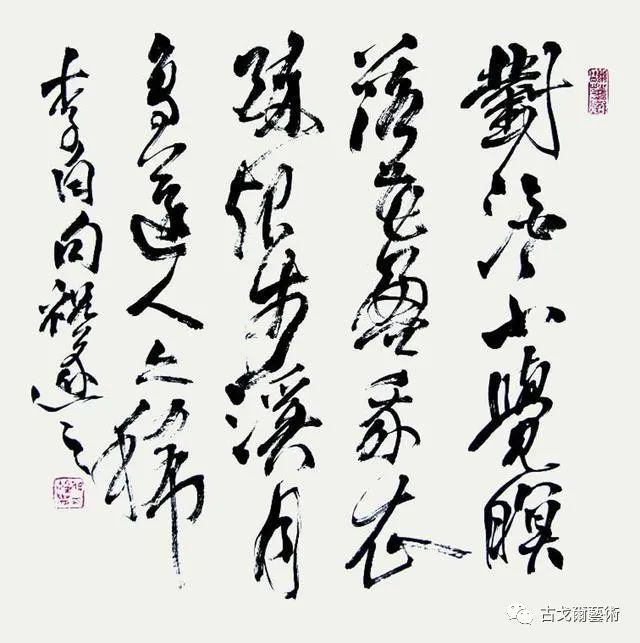 對酒不覺瞑
落花盈我衣
醉起步溪月
鳥還人亦稀
李白句
古戈爾藝術